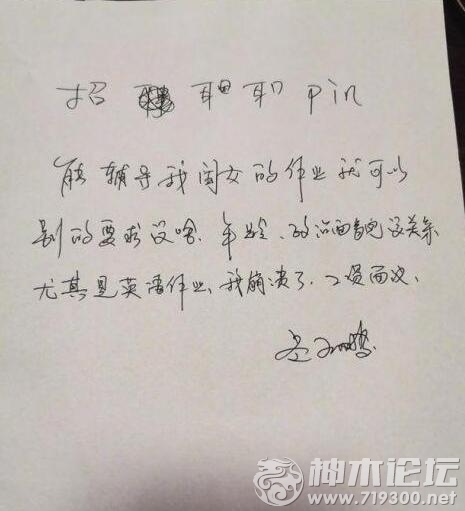 招 Pin
能辅导我闺女的作业就可以
别的要求没啥、年龄、政治面貌没关系
尤其是英语作业、我崩溃了、工资面议、
神木论坛
www.719300.net